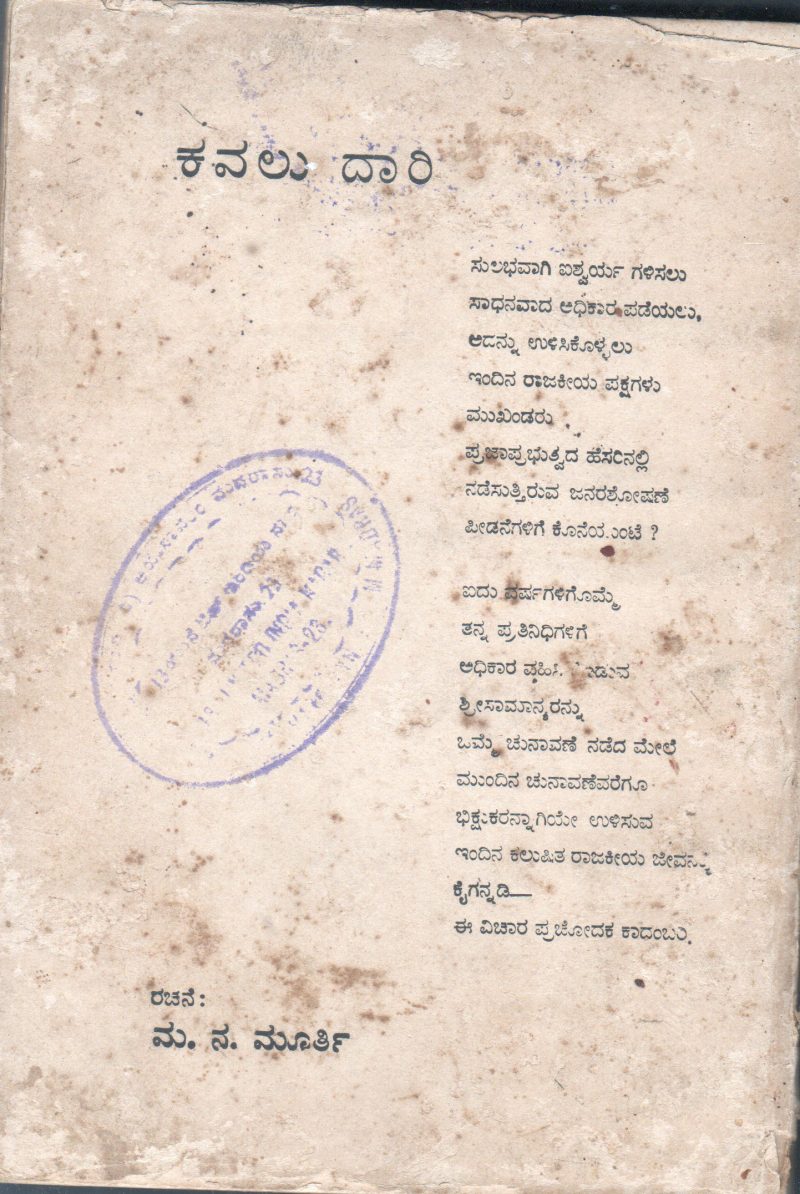 ಕವಲು ದಾರಿ
ಸುಲಭವಾಗಿ ಐಶ್ವರ್ಯ ಗಳಿಸಲು
ಸಾಧನವಾದ ಅಧಿಕಾರ ಪಡೆಯಲು,
ಅದನ್ನು ಉಳಿಸಿಕೊಳ್ಳಲು
ಇಂದಿನ ರಾಜಕೀಯ ಪಕ್ಷಗಳು
ಮುಖಂಡರು
ಪ್ರಜಾಪ್ರಭುತ್ವದ ಹೆಸರಿನಲ್ಲಿ
ನಡೆಸುತ್ತಿರುವ ಜನರಶೋಷಣೆ
ಪೀಡನೆಗಳಿಗೆ ಕೊನೆಯುಂಟೆ ?
ಐದು ವರ್ಷಗಳಿಗೊಮ್ಮೆ
ತನ್ನ ಪ್ರತಿನಿಧಿಗಳಿಗೆ
ಅಧಿಕಾರ
ಶ್ರೀಸಾಮಾನ್ಯರನ್ನು
ಒಮ್ಮೆ ಚುನಾವಣೆ ನಡೆದ ಮೇಲೆ
ಮುಂದಿನ ಚುನಾವಣೆವರೆಗೂ
ಭಿಕ್ಷುಕರನ್ನಾಗಿಯೇ ಉಳಿಸುವ
ಇಂದಿನ ಕಲುಷಿತ ರಾಜಕೀಯ
ಕೈಗನ್ನಡಿ—
ಈ ವಿಚಾರ ಪ್ರಚೋದಕ ಕಾದಂಬರಿ.
ರಚನೆ:
ಮ. ನ. ಮೂರ್ತಿ